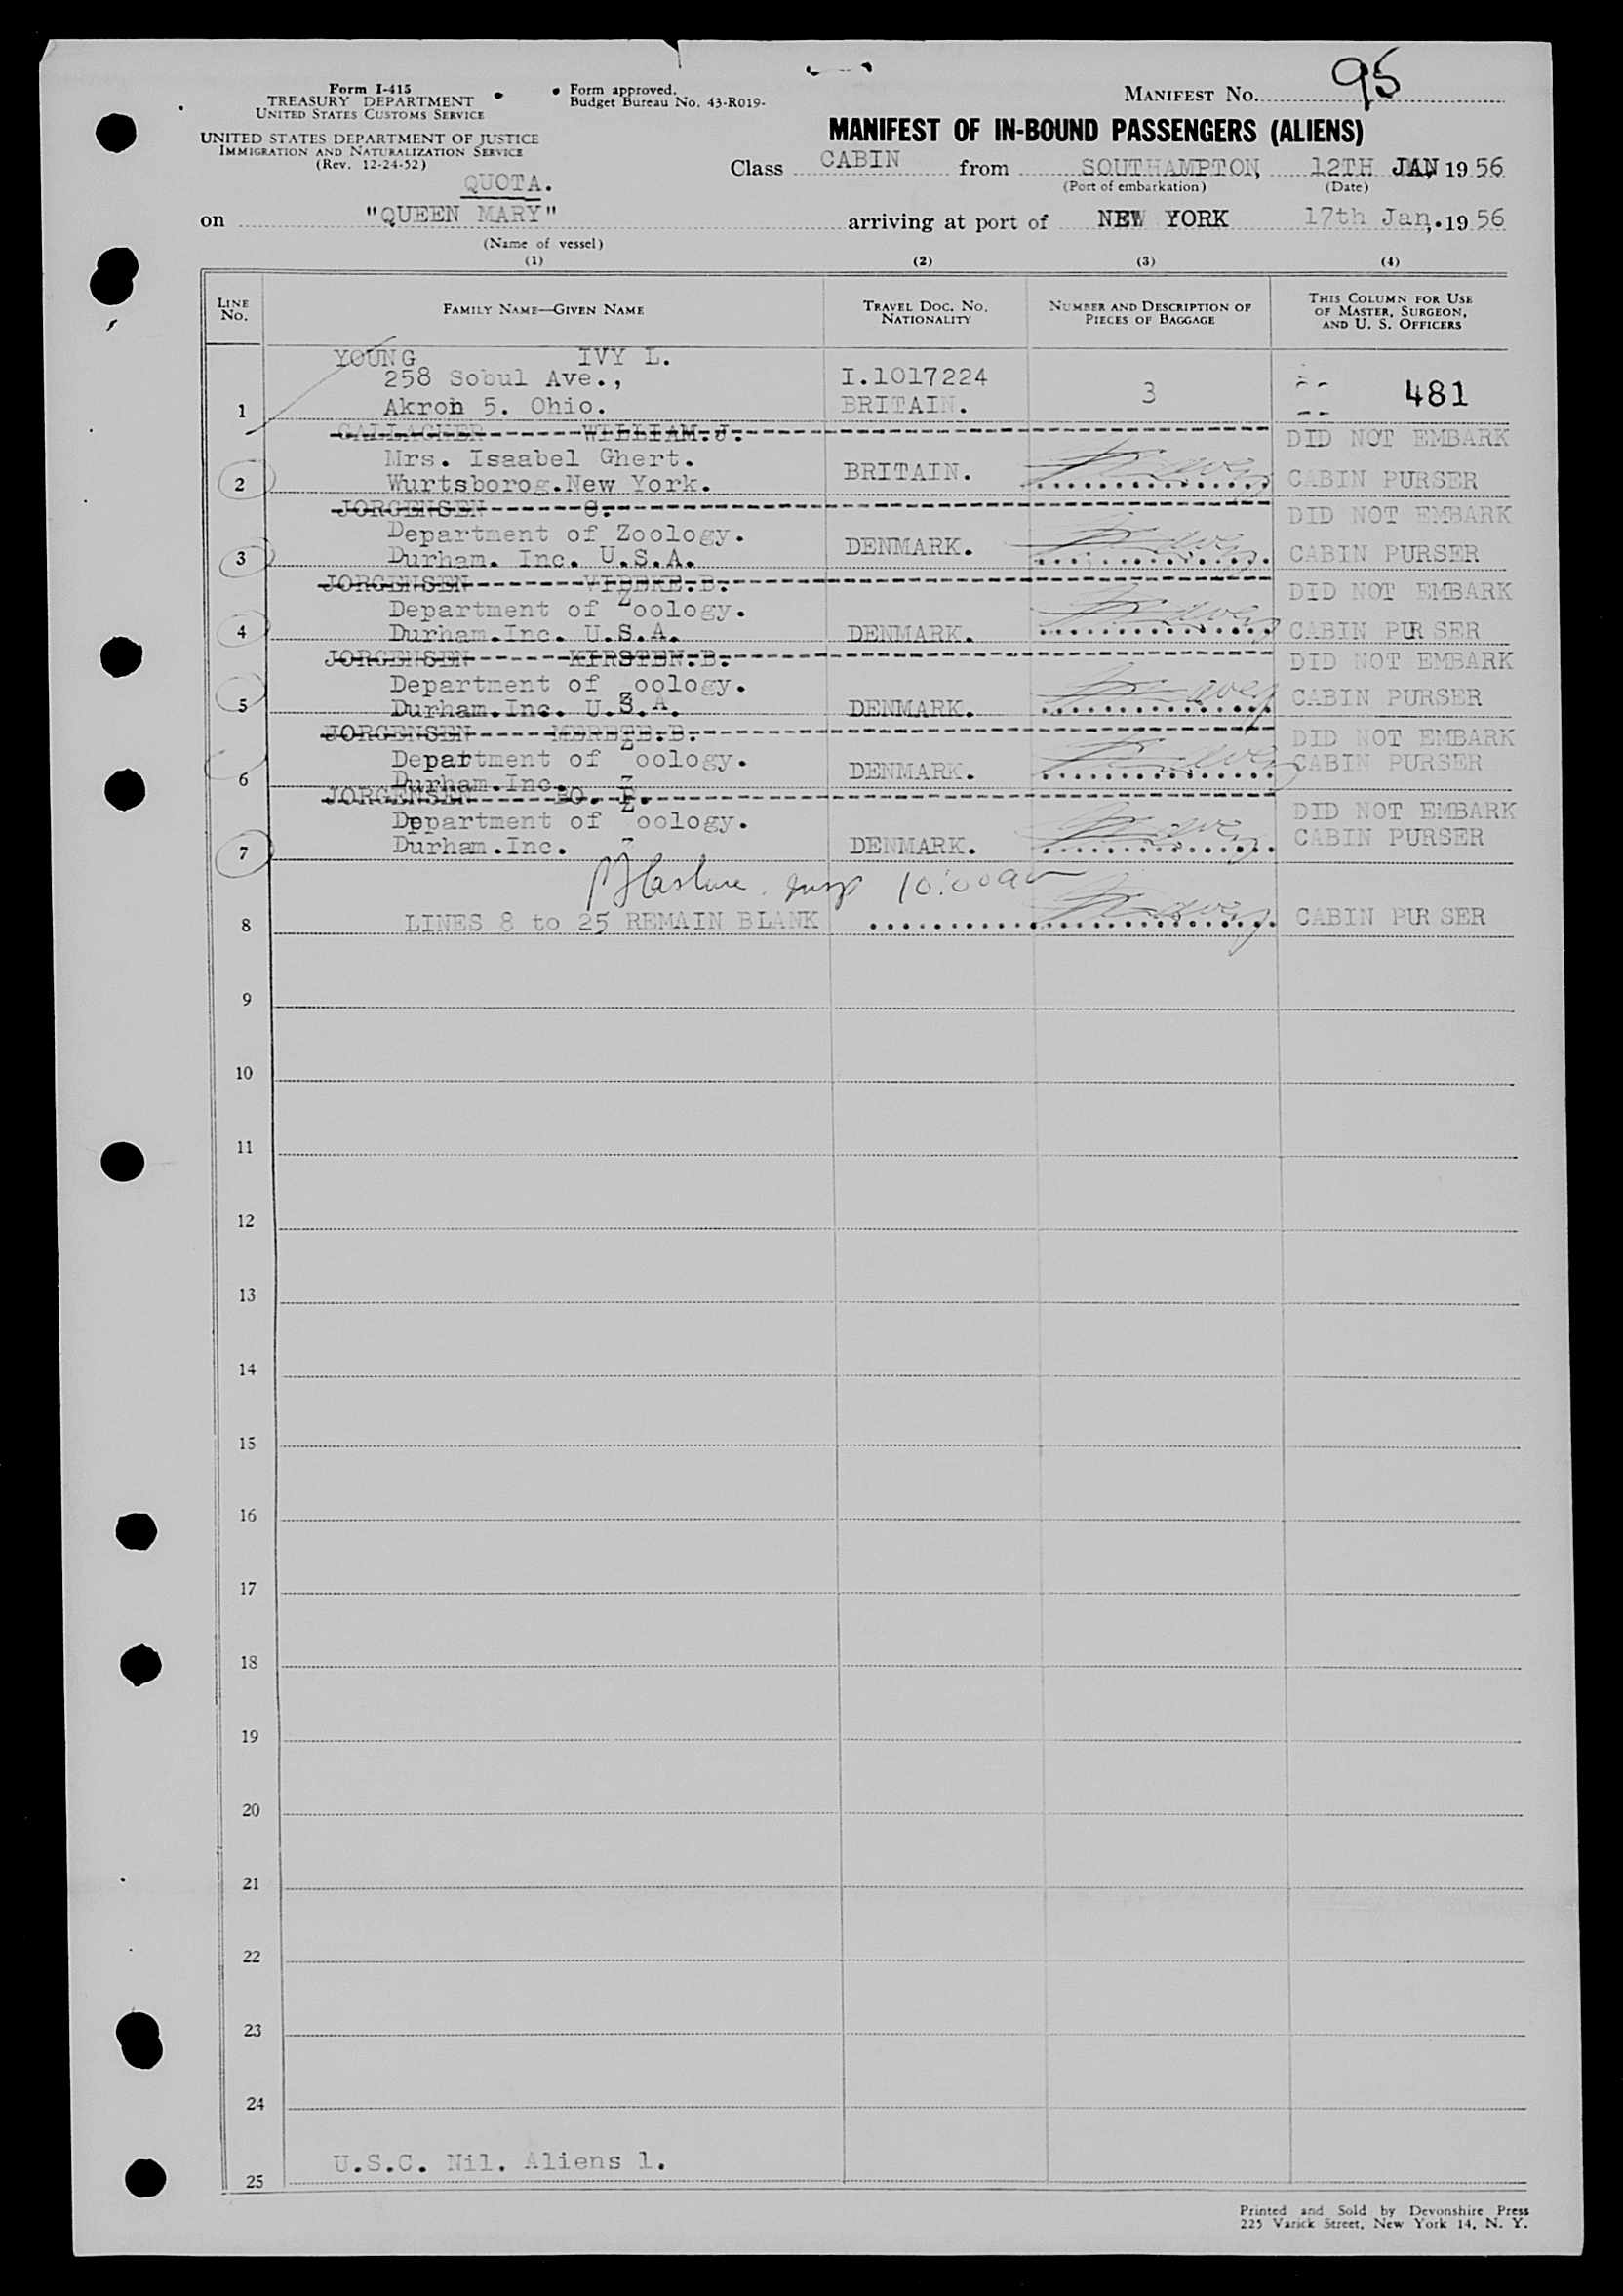 Form I-415
TREASURY DEPARTMENT
UNITED STATES CUSTOMS SERVICE
UNITED STATES DEPARTMENT OF JUSTICE
IMMIGRATION AND NATURALIZATION SERVICE
(Rev. 12-24-52)
Form approved.
Budget Bureau No. 43-R019-
MANIFEST No. 95
MANIFEST OF IN-BOUND PASSENGERS (ALIENS)
Class CABIN from SOUTHAMPTON, 12TH JAN, 19 56
(Port of embarkation) (Date)
QUOTA.
on "QUEEN MARY" arriving at port of NEW YORK 17th Jan,.19 56
(Name of vessel)
(1) (2) (3) (4)
LINE No. FAMILY NAME—GIVEN NAME TRAVEL DOC. NO. NATIONALITY NUMBER AND DESCRIPTION OF PIECES OF BAGGAGE THIS COLUMN FOR USE OF MASTER, SURGEON, AND U. S. OFFICERS
YOUNG IVY L.
258 Sobul Ave., I.1017224 3 481
1 Akron 5. Ohio. BRITAIN.
GALLAGHER WILLIAM.J. DID NOT EMBARK
Mrs. Isaabel Ghert. BRITAIN.
2 Wurtsborog.New York. CABIN PURSER
JORGENSEN C. DID NOT EMBARK
Department of Zoology. DENMARK.
3 Durham. Inc. U.S.A. CABIN PURSER
JORGENSEN VIBEKE.B. DID NOT EMBARK
Department of Zoology.
4 Durham.Inc. U.S.A. DENMARK. CABIN PURSER
JORGENSEN KIRSTEN.B. DID NOT EMBARK
Department of Zoology. CABIN PURSER
5 Durham.Inc. U.S.A. DENMARK.
JORGENSEN MERETE.B. DID NOT EMBARK
Department of Zoology. DENMARK. CABIN PURSER
6 Durham.Inc.
JORGENSEN BO. B. DID NOT EMBARK
Department of Zoology.
7 Durham.Inc. DENMARK. CABIN PURSER
insp 10:00am
8 LINES 8 to 25 REMAIN BLANK CABIN PURSER
9
10
11
12
13
14
15
16
17
18
19
20
21
22
23
24
25 U.S.C. Nil. Aliens 1.
Printed and Sold by Devonshire Press
225 Varick Street, New York 14, N. Y.